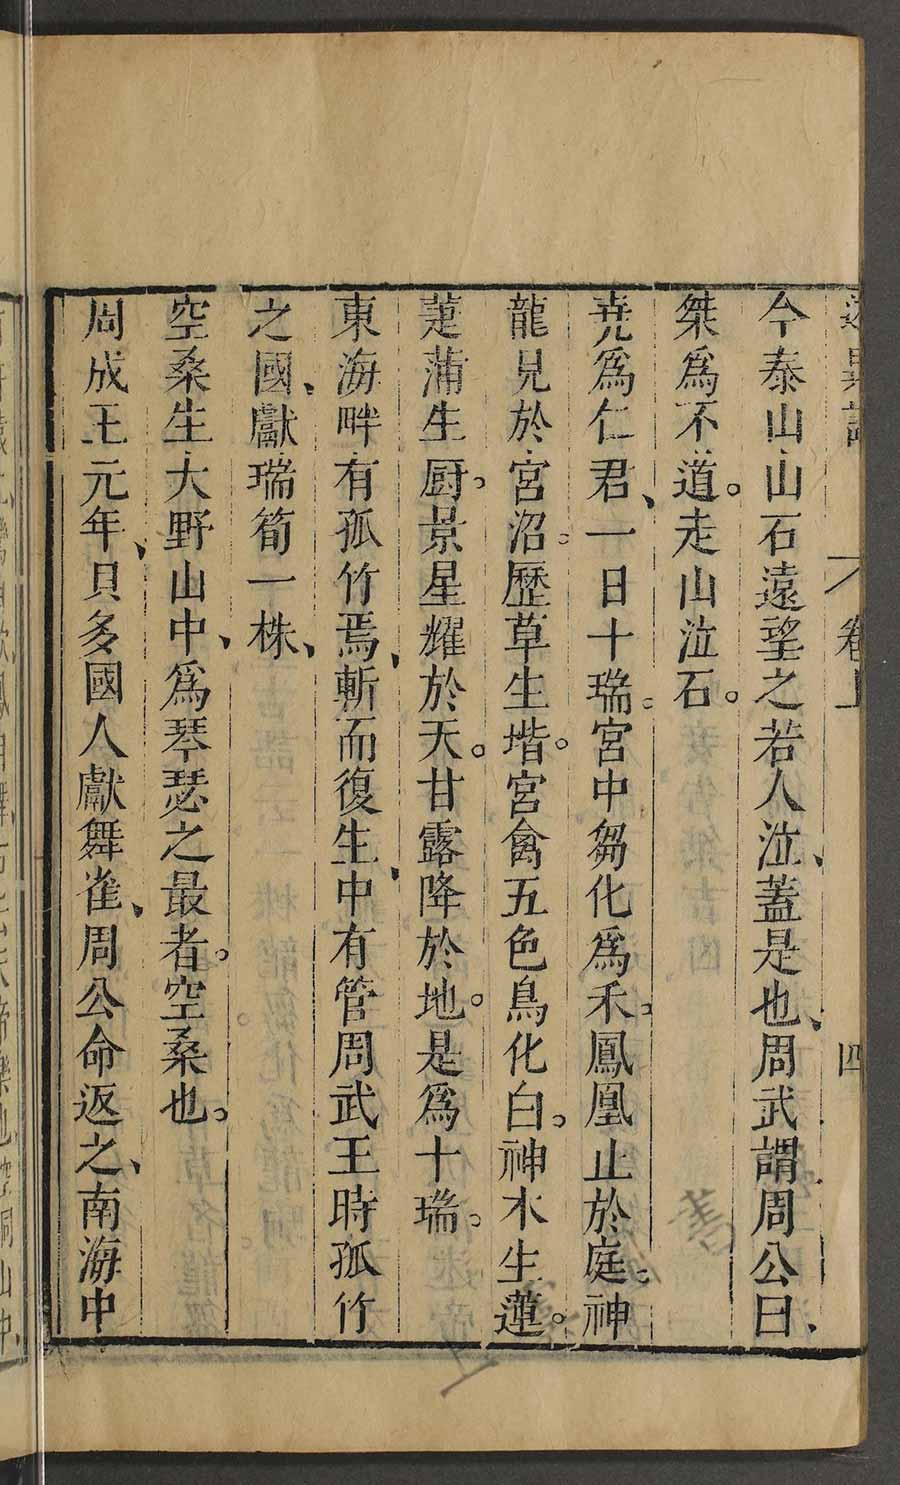 卷上
四
今泰山山石遠望之若人泣、蓋是也、周武謂周公曰、
桀為不道。走山泣石。
堯為仁君、一日十瑞。宮中芻化為禾。鳳凰止於庭。神
龍見於宮沼。歷草生堦。宮禽五色鳥化白。神木生蓮。
萐蒲生厨。景星耀於天。甘露降於地。是為十瑞。
東海畔有孤竹焉、斬而復生、中有管周武王時孤竹
之國、獻瑞筍一株、
空桑生大野山中、為琴瑟之最者。空桑也。
周成王元年、貝多國人獻舞雀、周公命返之、南海中